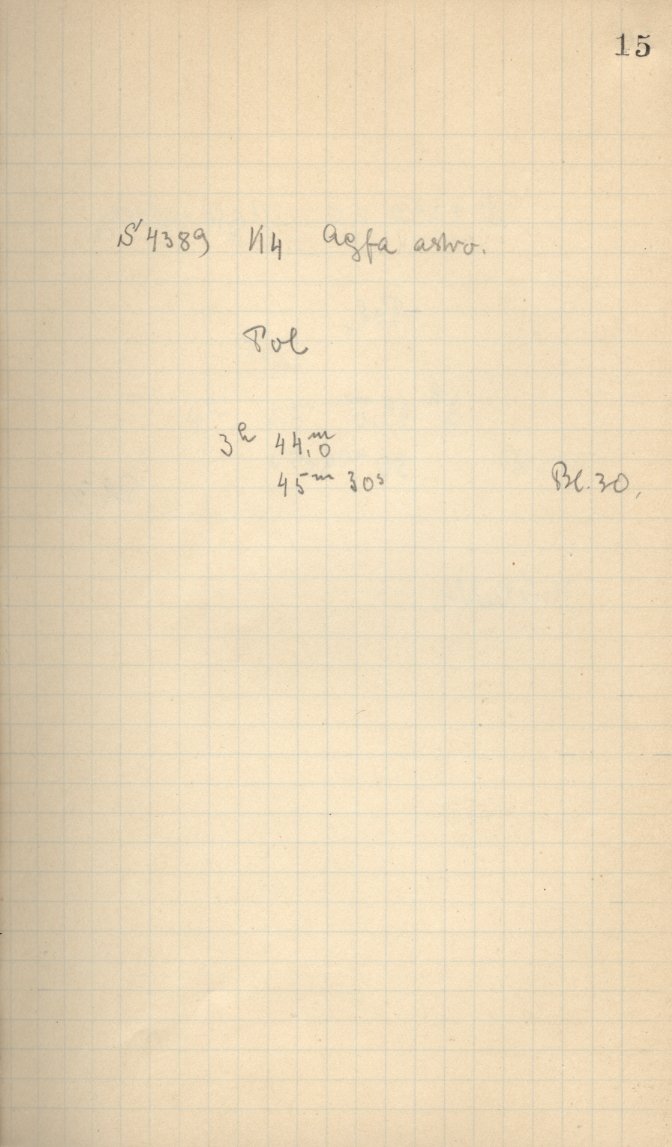 15
S 4389 K4 Agfa astro.
Pol
3h 44,m0
45m 30s Bl. 30,